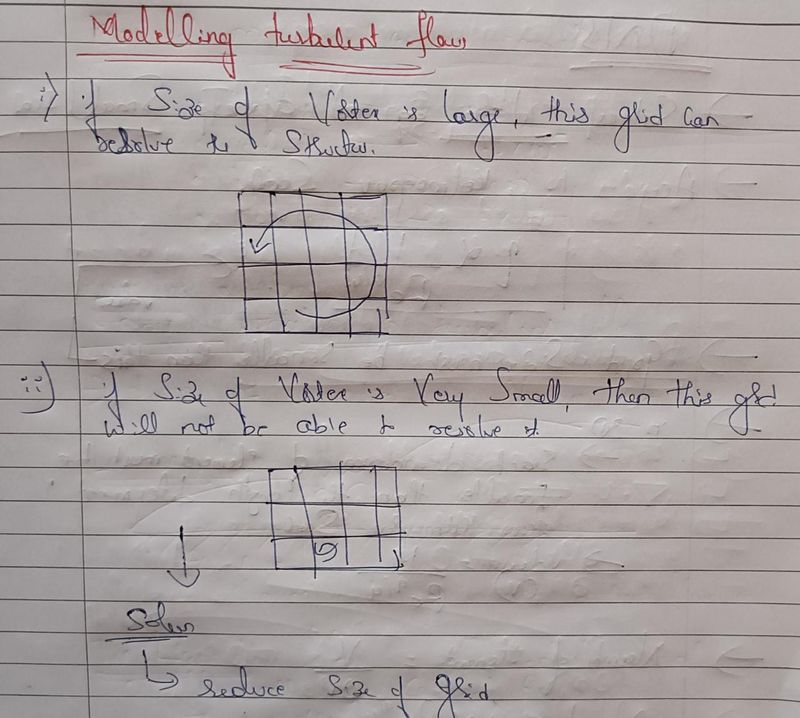 Modelling turbulent flow
i) if Size of Vortex is large, this grid can
resolve the Structure.
ii) if Size of Vortex is Very Small, then this grid
will not be able to resolve it.
Soln
reduce Size of grid